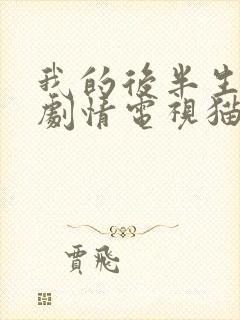 我的後半生
劇情電視猫
賈飛